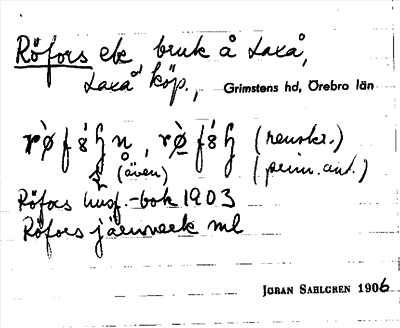 Röfors elc bruk å Laxå,
Laxå köp., Grimstens hd, Örebro län
(renskr.)
(även) (prim. ant.)
Röfors husf.-bok 1903
Röfors järnverk ml
JÖRAN SAHLGREN 1906